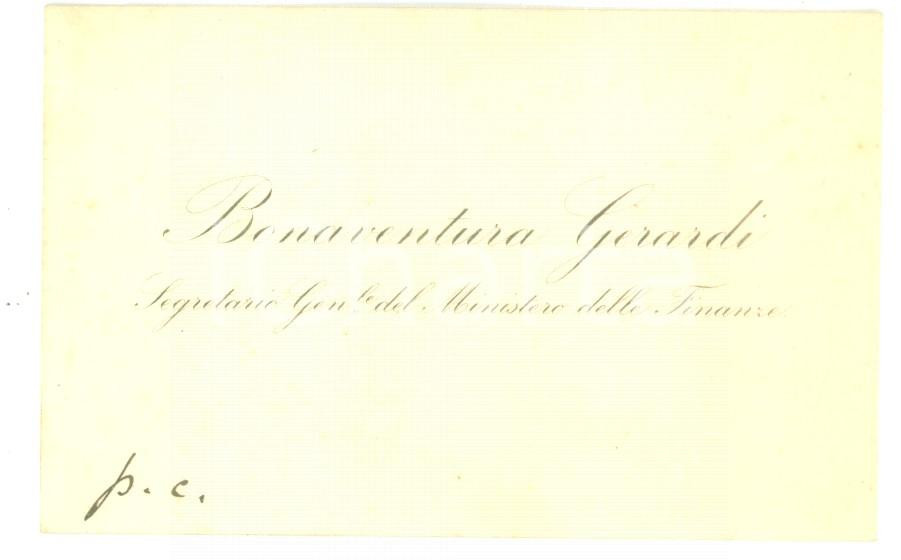 Bonaventura Gerardi
Segretario Gen.le del Ministero delle Finanze
p. c.